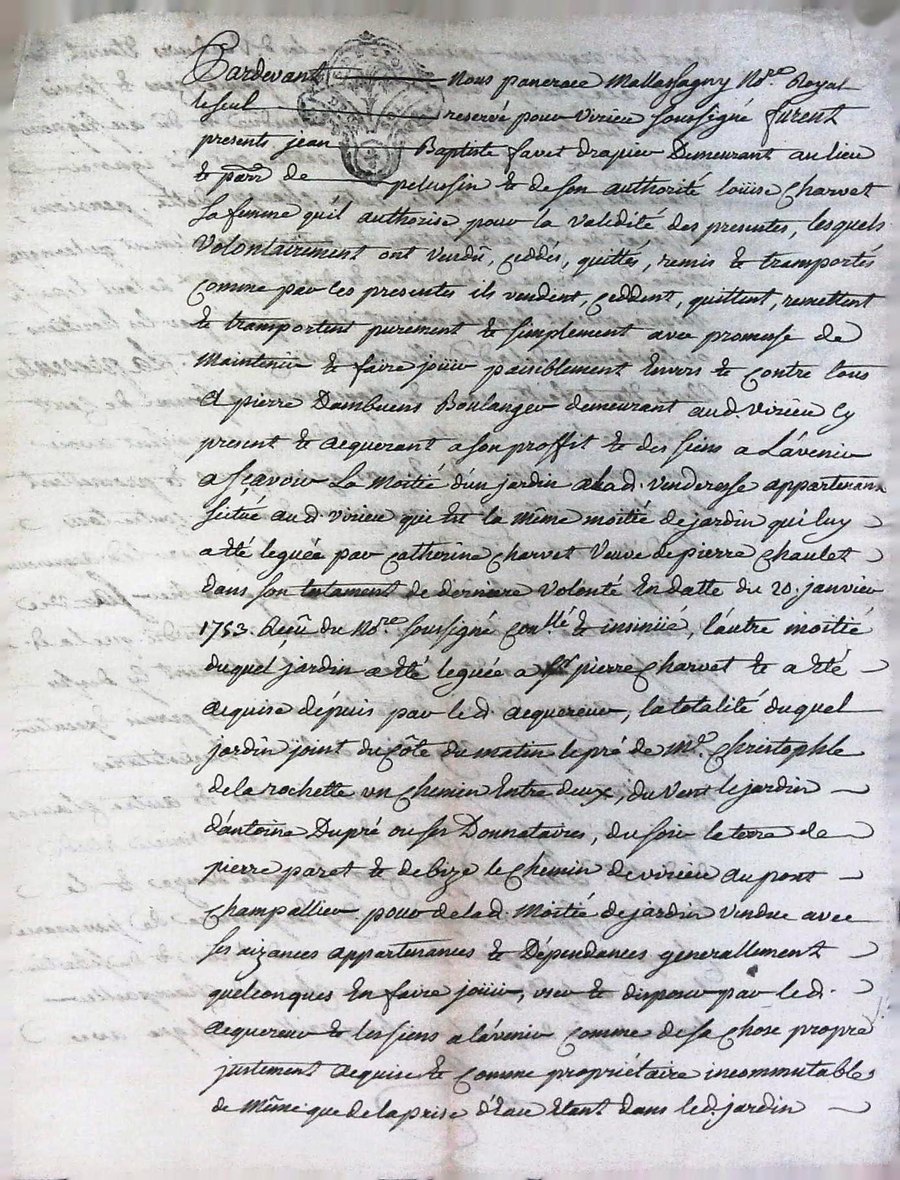 Pardevant Nous pancrace Mallassagny No.re Royal
le seul reservé pour Virieu soussigné furent
presents jean Baptiste favet drapier Demeurant au lieu
& parr de pelussin & de son authorité loüise Charvet
sa femme qu'il authorise pour la validité des presentes, lesquels
Volontairement ont vendu, ceddés, quittés, remis & transportés
comme par les presentes ils vendent, ceddent, quittent, remettent
& transportent purement & simplement avec promesse de
Maintenir & faire joüir paisiblement Envers & contre tous
A pierre Dambuens Boulanger demeurant aud. Virieu Cy
present & acquerant a son proffit & des siens a L'avenir
a scavoir La Moitié d'un jardin a lad. Venderesse appartenant
scitué aud. virieu qui Est la même moitié de jardin qui luy
a Eté leguée par Catherine Charvet Veuve de pierre Chaulet
dans son testament de derniere Volonté En datte du 20. janvier
1753. Reçû du No.re soussigné con.llé & insinüé, l'autre moitié
duquel jardin a eté leguée a pierre Charvet & a eté
acquise depuis par led. acquereur, la totalité duquel
jardin joint du côte du matin le pré de M.re Christophle
de la rochette un chemin Entre deux, du Vent le jardin
d'antoine Dupré ou ses Donnataires, du soir la terre de
pierre paret & de bize le chemin de virieu au pont
champallier pour de lad. Moitié de jardin Vendue avec
ses aizances appartenances & Dépendances generallement
quelconques En faire joüir, user & disposer par led.
acquereur & les siens a l'avenir comme de sa chose propre
justement acquise & comme propriétaire incommutable
de même que de la prise d'Eau Etant dans led. jardin